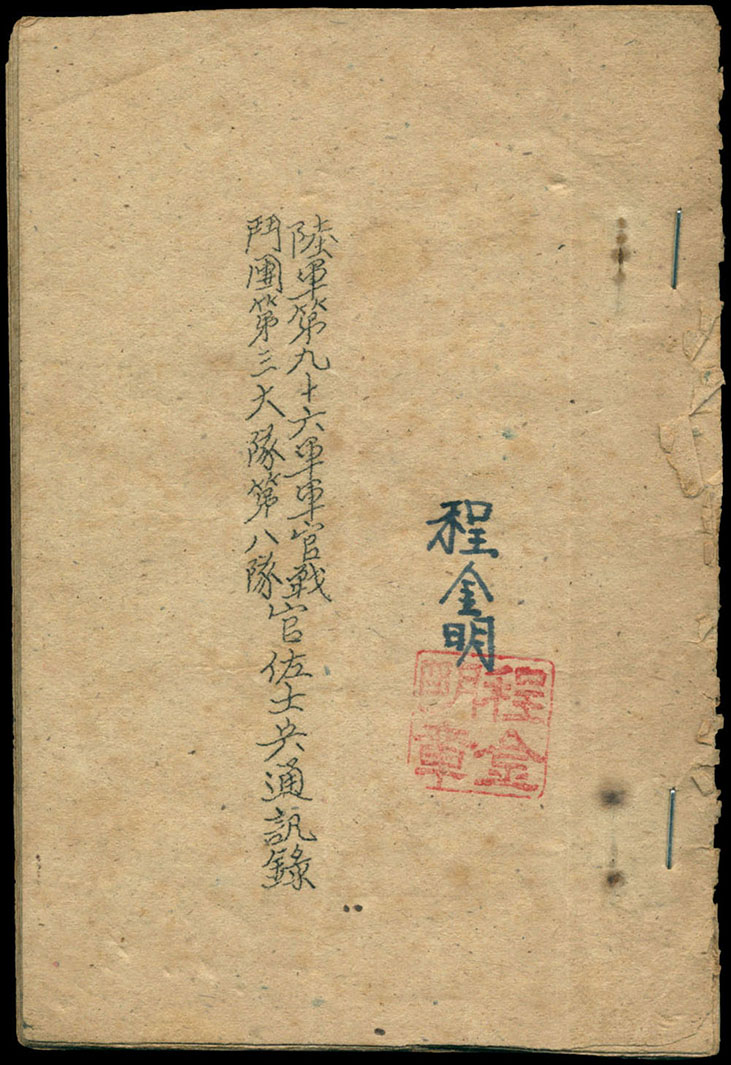 程金明
程金
明章
陸軍第九十六軍軍官戰
鬥團第三大隊第八隊
官佐士兵通訊錄